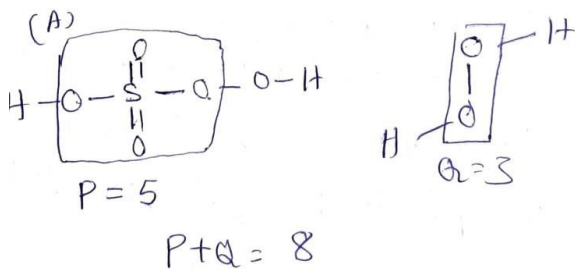 (A)
O
H-O-S-O-O-H
O
P = 5
O-H
H O
Q=3
P+Q = 8